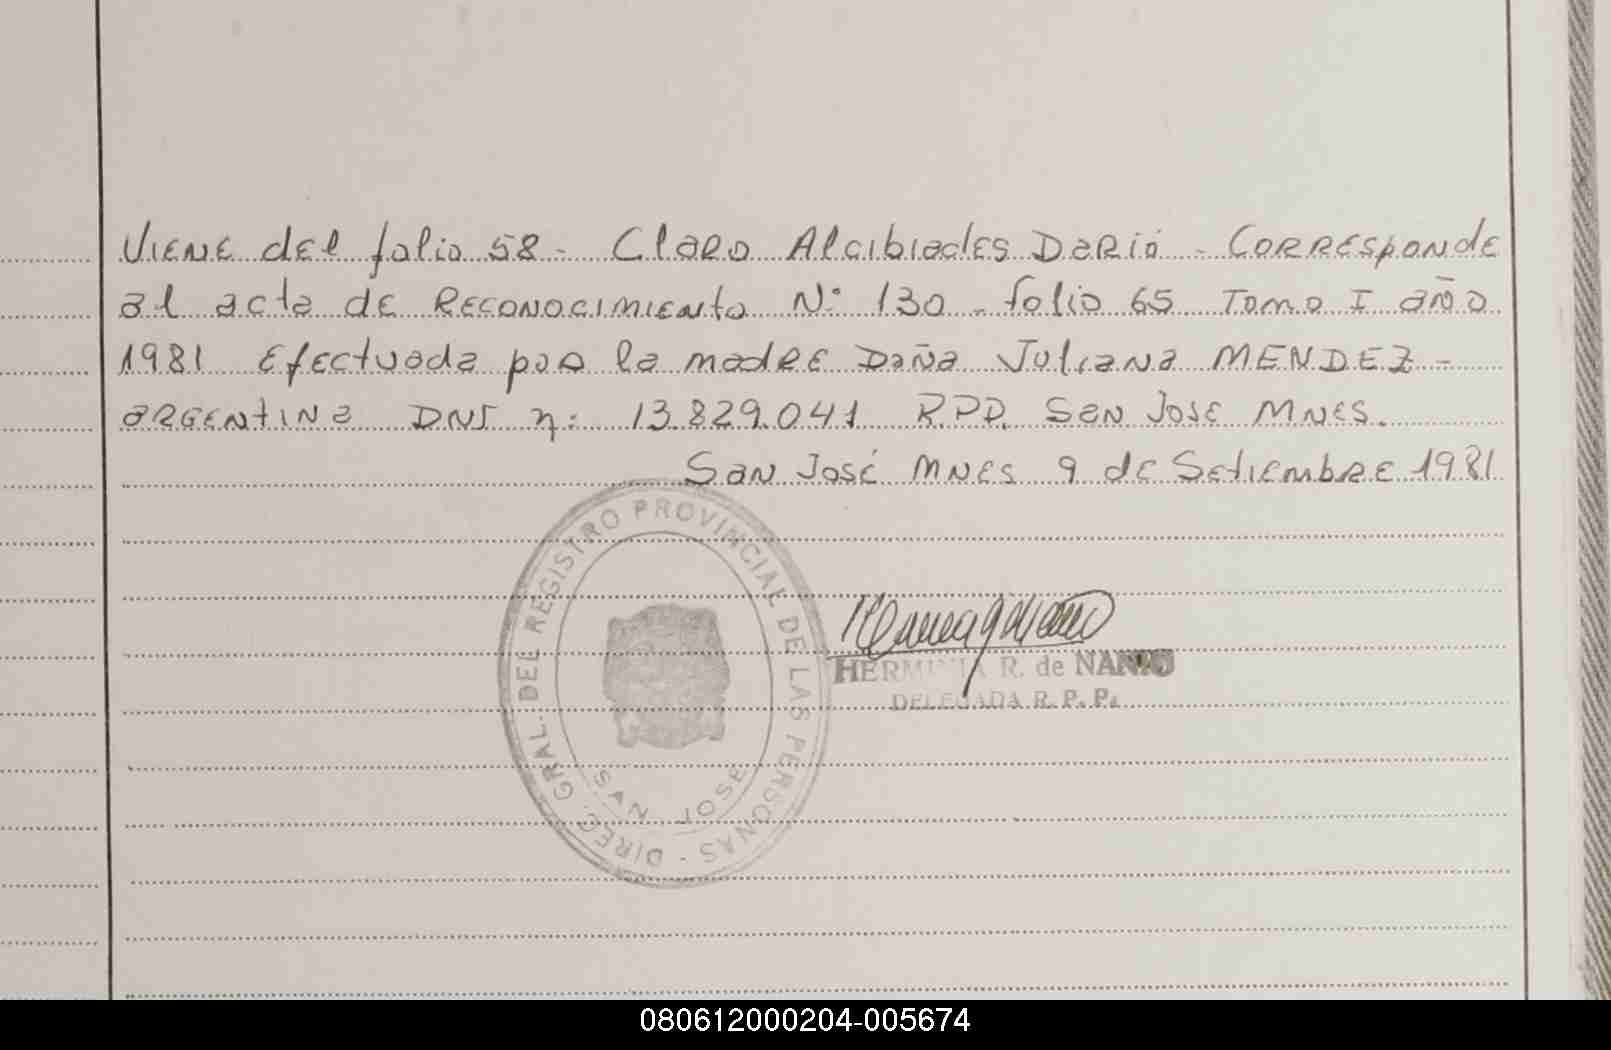 Viene del folio 58 - Claro Alcibiades Dario - Corresponde
al acta de Reconocimiento N: 130 - folio 65 Tomo I año
1981 Efectuada por la madre Doña Juliana MENDEZ -
argentina DNI n: 13.829.041 R.P.P. San Jose MNES.
San José MNES 9 de Setiembre 1981
DIREC. GRAL. DEL REGISTRO PROVINCIAL DE LAS PERSONAS -
SAN JOSE
HERMINIA R. de
DELEGADA R. P. P.
080612000204-005674